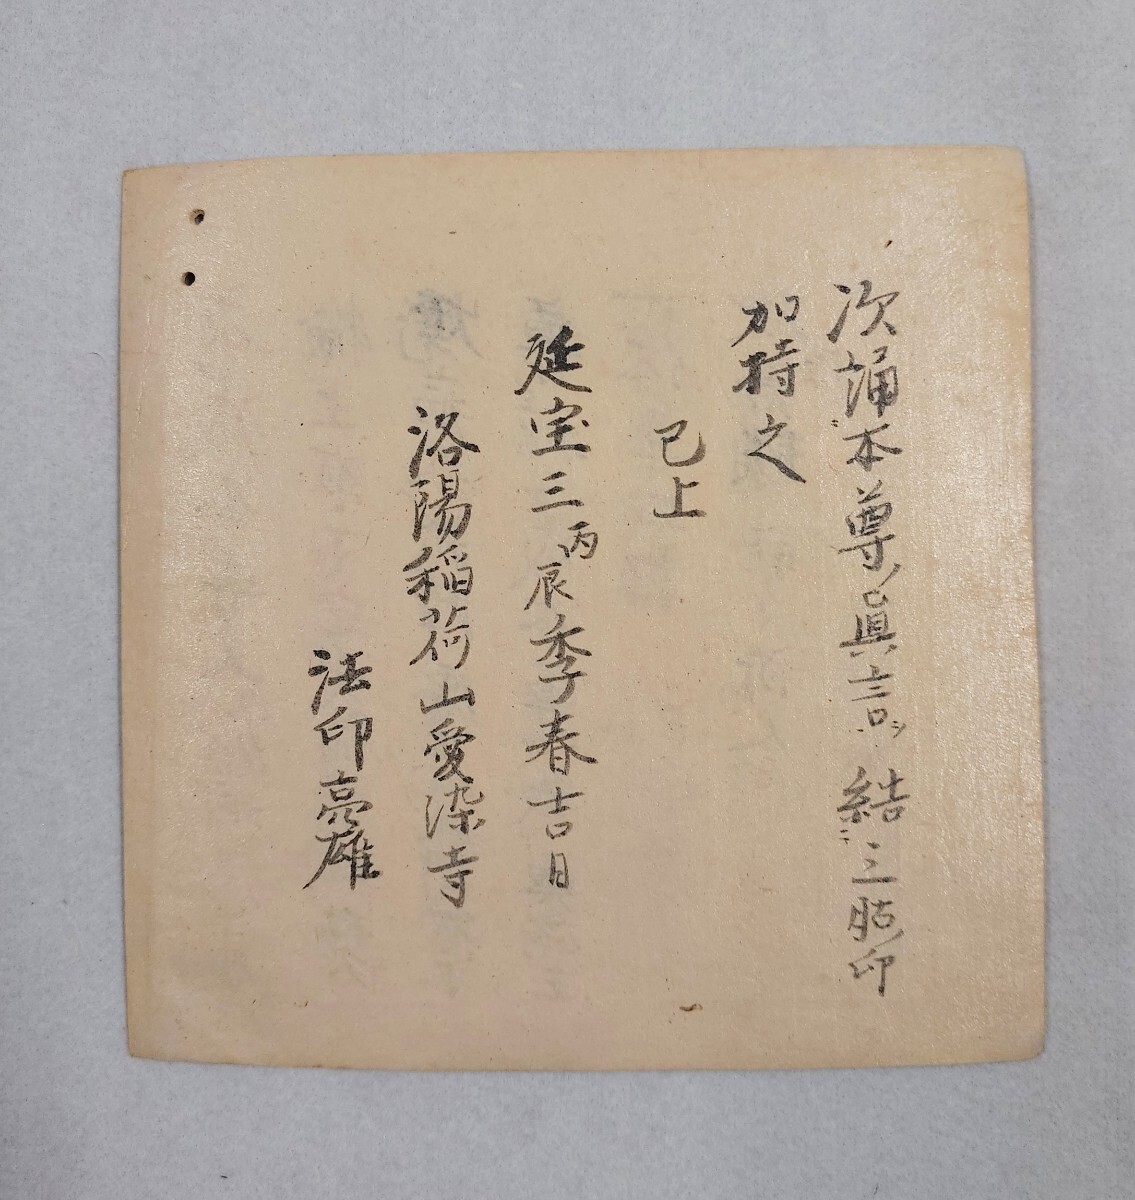 次誦本尊ノ真言ヲ結ニ三胋印
加持之
已上
延宝三丙辰季春吉日
洛陽稲荷山愛染寺
法印亮雄